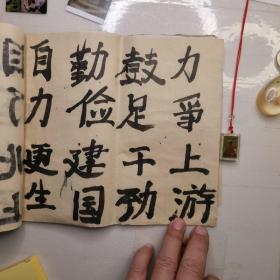 自力更生
勤俭建国
鼓足干劲
力爭上游